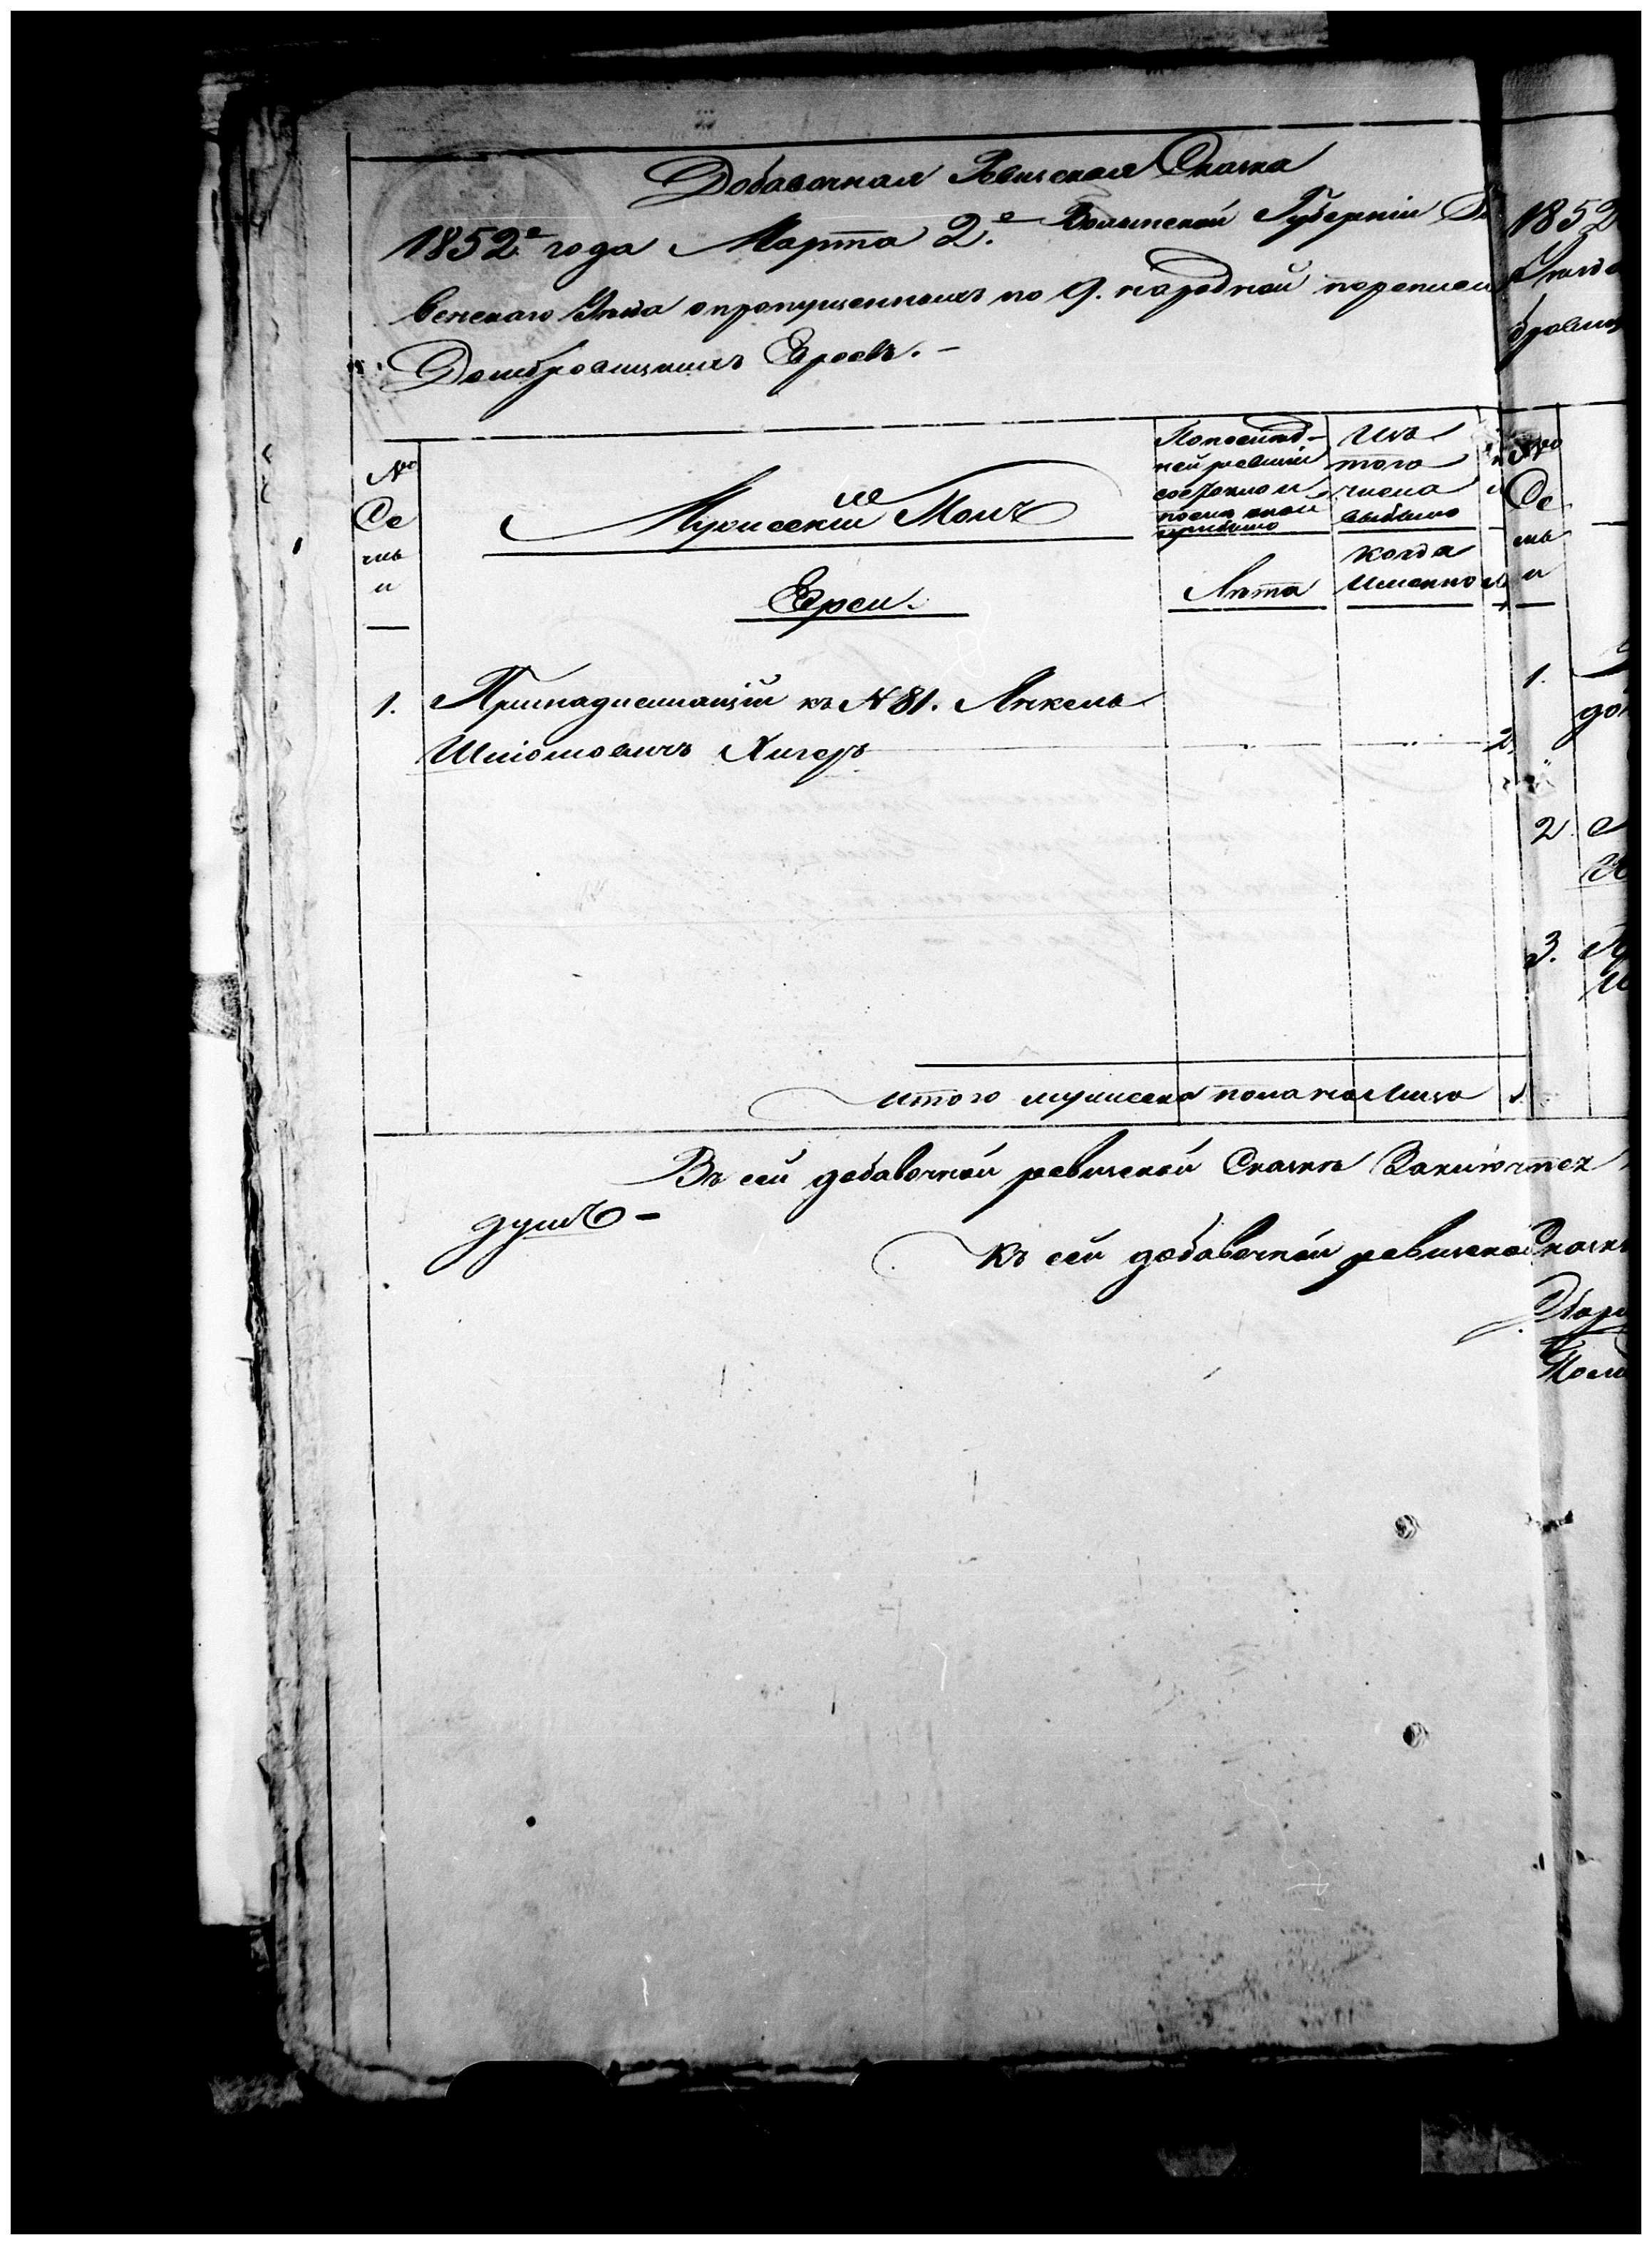 Добавочная Ревизская Сказка
1852е года Марта 2.е Волынской Губерніи
венскаго Уѣзда о пропущенныхъ по 9. народной переписи
Домбровицкихъ Евреевъ. –
№
Се
мьи
Мужескій Полъ
Евреи.
По послѣд-
ней ревизіи
состояло и
послѣ оной
прибыло
Лѣта
Изъ
того
числа
выбыло
когда
именно
1. Принадлежащій къ N 81. Янкель
Шліомовичъ Хигеръ
Итого мужеска пола на лицо
Въ сей добавочной ревизской Сказкѣ Заключается
душъ –
Къ сей добавочной ревизской Сказкѣ
1852
№
Се
мь
и
1.
2.
3.